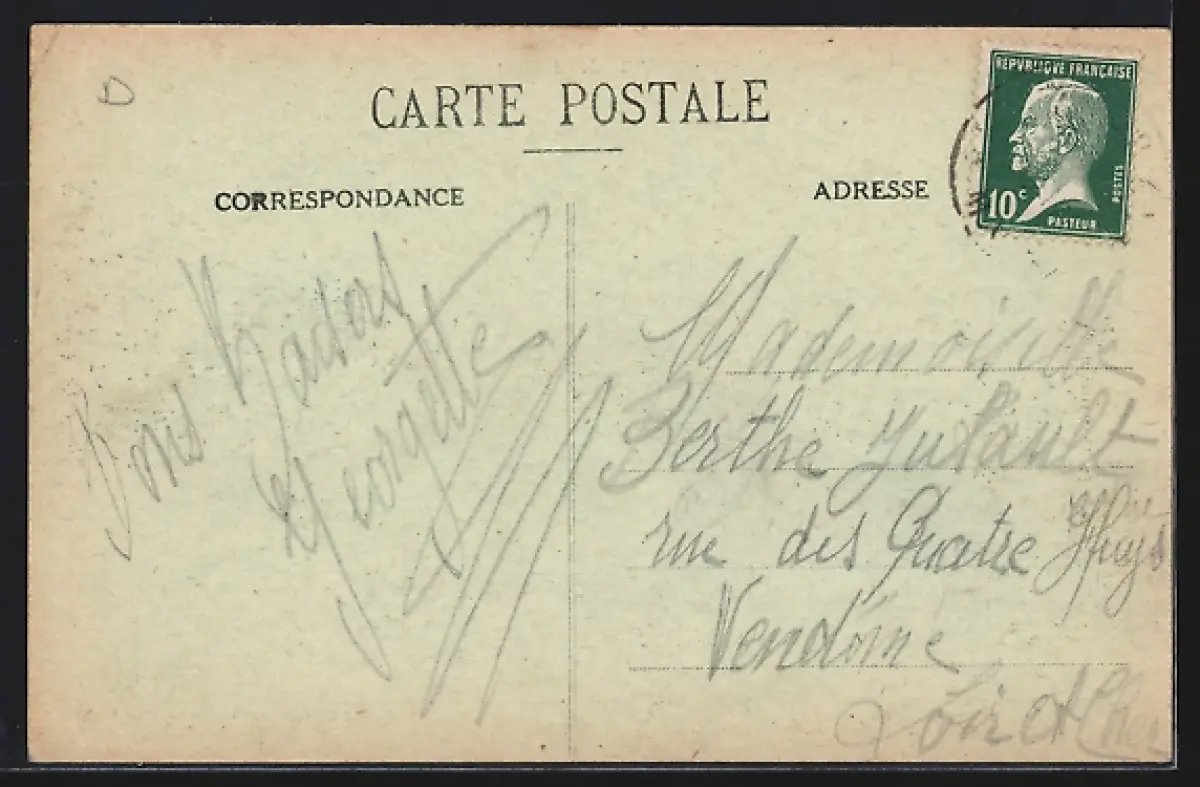 D
CARTE POSTALE
CORRESPONDANCE
ADRESSE
REPVBLIQVE FRANÇAISE
10c
POSTES
PASTEUR
Bons Baisers
Georgette
Mademoiselle
Berthe
rue des Quatre Huys
Vendôme
Loir et Cher